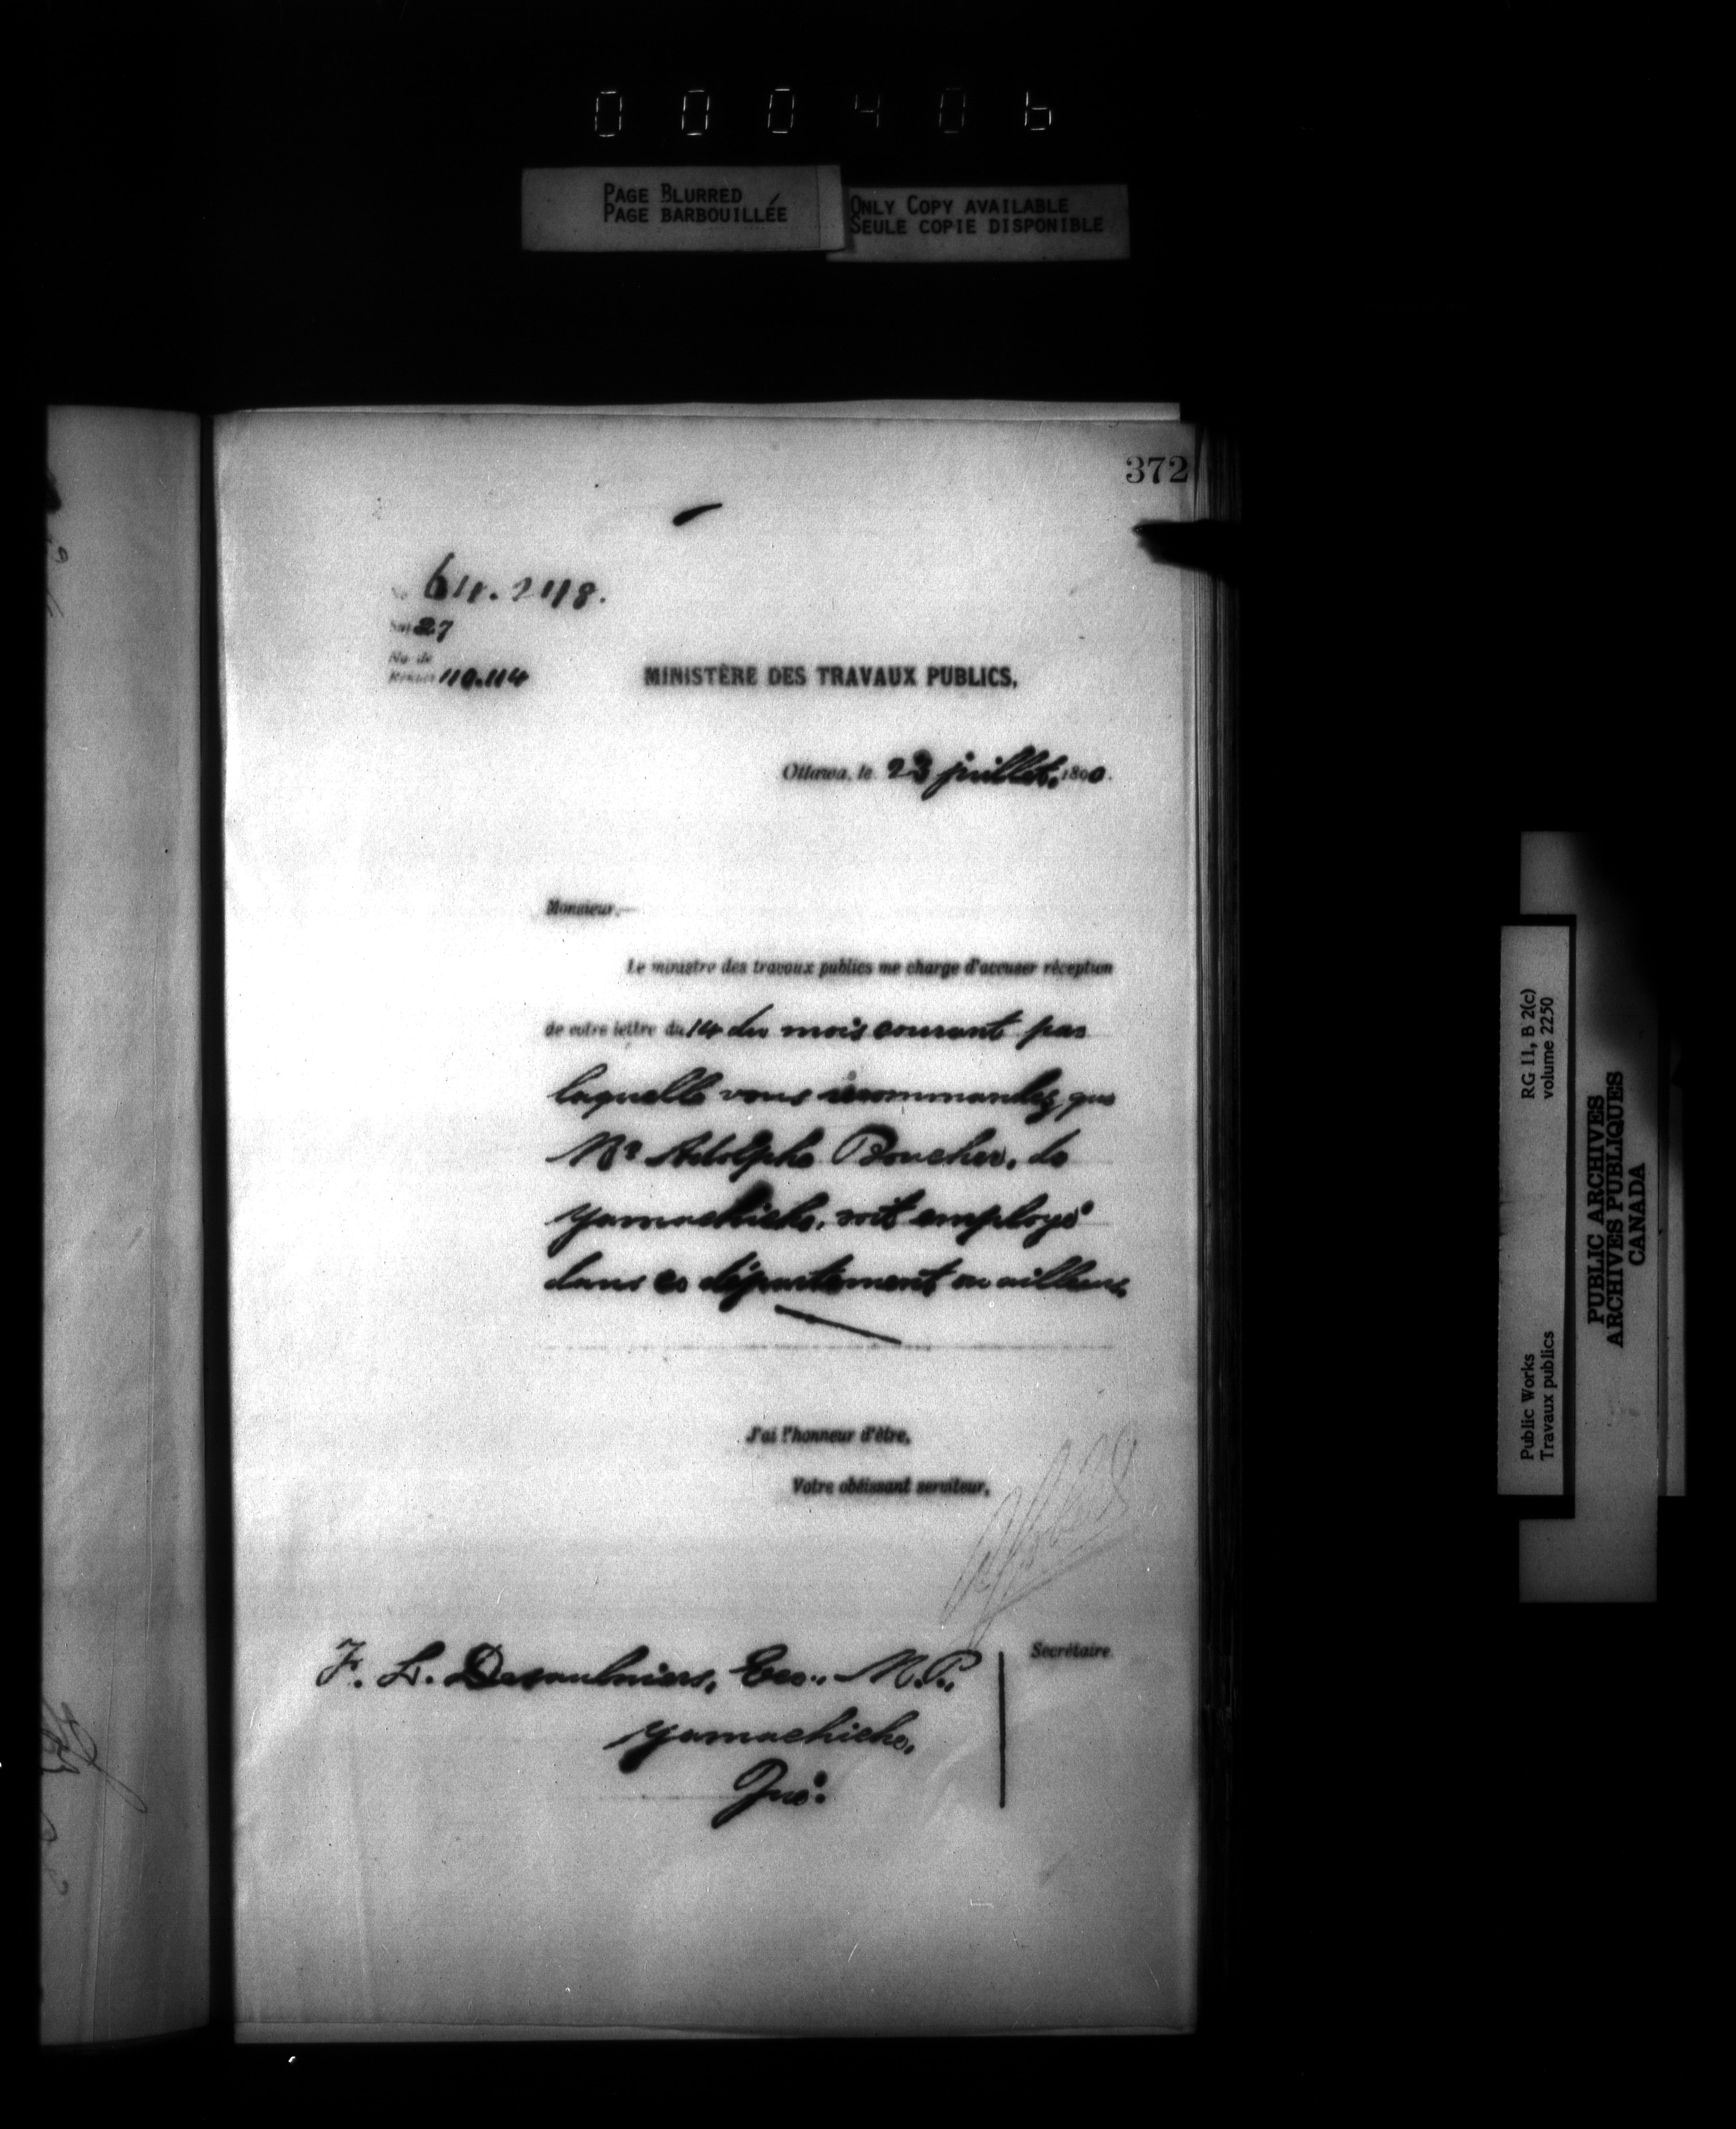 000406
PAGE BLURRED
PAGE BARBOUILLÉE
ONLY COPY AVAILABLE
SEULE COPIE DISPONIBLE
372
64.248.
27
No de
110.114
MINISTÈRE DES TRAVAUX PUBLICS,
Ottawa, le 23 juillet, 1890.
Monsieur,—
Le ministre des travaux publics me charge d'accuser réception
de votre lettre du 14 du mois courant par
laquelle vous recommandez que
Mr Adolphe Boucher, de
Yamachiche, soit employé
dans ce département ou ailleurs.
J'ai l'honneur d'être,
Votre obéissant serviteur,
Secrétaire
F. L. Desaulniers, Ecr., M.P.,
Yamachiche,
Qué:
Public Works
Travaux publics
RG 11, B 2(c)
volume 2250
PUBLIC ARCHIVES
ARCHIVES PUBLIQUES
CANADA